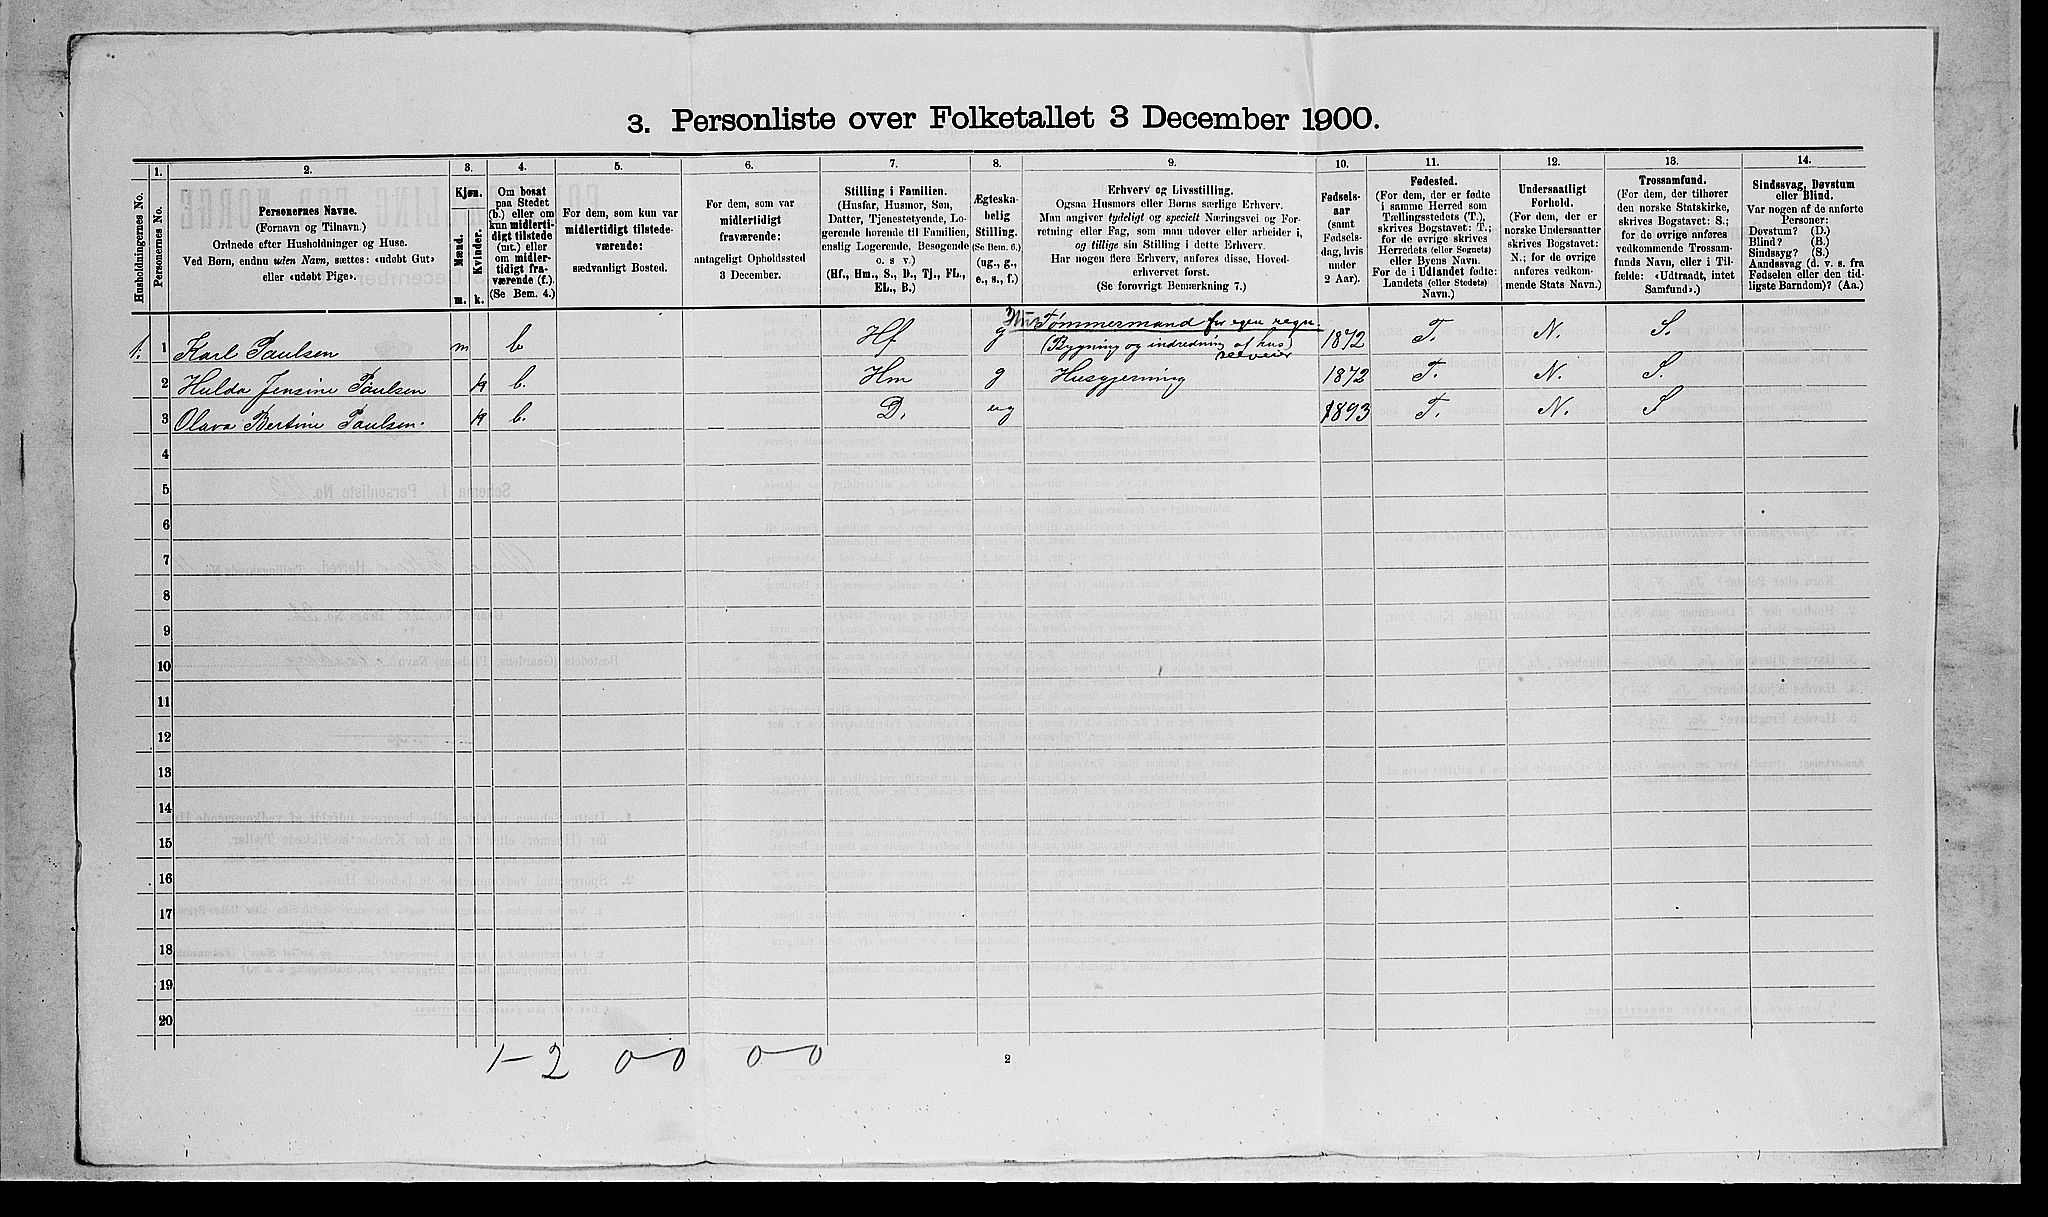 3. Personliste over Folketallet 3 December 1900.
1. 2. 3. 4. 5. 6. 7. 8. 9. 10. 11. 12. 13. 14.
Husholdningernes No.
Personernes No.
Personernes Navne.
(Fornavn og Tilnavn.)
Ordnede efter Husholdninger og Huse.
Ved Børn, endnu uden Navn, sættes: «udøbt Gut»
eller «udøbt Pige».
Kjøn.
Mænd.
Kvinder.
m. k.
Om bosat
paa Stedet
(b.) eller om
kun midlerti-
digt tilstede
(mt.) eller
om midler-
tidigt fra-
værende (f.).
(Se Bem. 4.)
For dem, som kun var
midlertidigt tilstede-
værende:
sædvanligt Bosted.
For dem, som var
midlertidigt
fraværende:
antageligt Opholdssted
3 December.
Stilling i Familien.
(Husfar, Husmor, Søn,
Datter, Tjenestetyende, Lo-
gerende hørende til Familien,
enslig Logerende, Besøgende
o. s v.)
(Hf., Hm., S., D., Tj., FL.,
EL., B.)
Ægteska-
belig
Stilling.
(Se Bem. 6.)
(ug., g.,
e., s., f.)
Erhverv og Livsstilling.
Ogsaa Husmors eller Børns særlige Erhverv.
Man angiver tydeligt og specielt Næringsvei og For-
retning eller Fag, som man udøver eller arbeider i,
og tillige sin Stilling i dette Erhverv.
Har nogen flere Erhverv, anføres disse, Hoved-
erhvervet først.
(Se forøvrigt Bemærkning 7.)
Fødsels-
aar
(samt
Fødsels-
dag, hvis
under
2 Aar).
Fødested.
(For dem, der er fødte
i samme Herred som
Tællingsstedets (T.),
skrives Bogstavet: T.;
for de øvrige skrives
Herredets (eller Sognets)
eller Byens Navn.
For de i Udlandet fødte:
Landets (eller Stedets)
Navn.)
Undersaatligt
Forhold.
(For dem, der er
norske Undersaatter
skrives Bogstavet:
N.; for de øvrige
anføres vedkom-
mende Stats Navn.)
Trossamfund.
(For dem, der tilhører
den norske Statskirke,
skrives Bogstavet: S.;
for de øvrige anføres
vedkommende Trossam-
funds Navn, eller i Til-
fælde: «Udtraadt, intet
Samfund».)
Sindssvag, Døvstum
eller Blind.
Var nogen af de anførte
Personer:
Døvstum? (D.)
Blind? (B.)
Sindssyg? (S.)
Aandssvag (d. v. s. fra
Fødselen eller den tid-
ligste Barndom)? (Aa.)
Hustømmermand for egen regn.
1. 1 Karl Paulsen m b Hf g (Bygning og indredning af hus) 1872 T. N. S.
selveier
2 Hulda Jensine Paulsen k b. Hm g Husgjerning 1872 T. N. S.
3 Olava Bertine Paulsen. k b. D. ug 1893 T. N. S
4
5
6
7
8
9
10
11
12
13
14
15
16
17
18
19
20
1-2 0-0 0-0
2